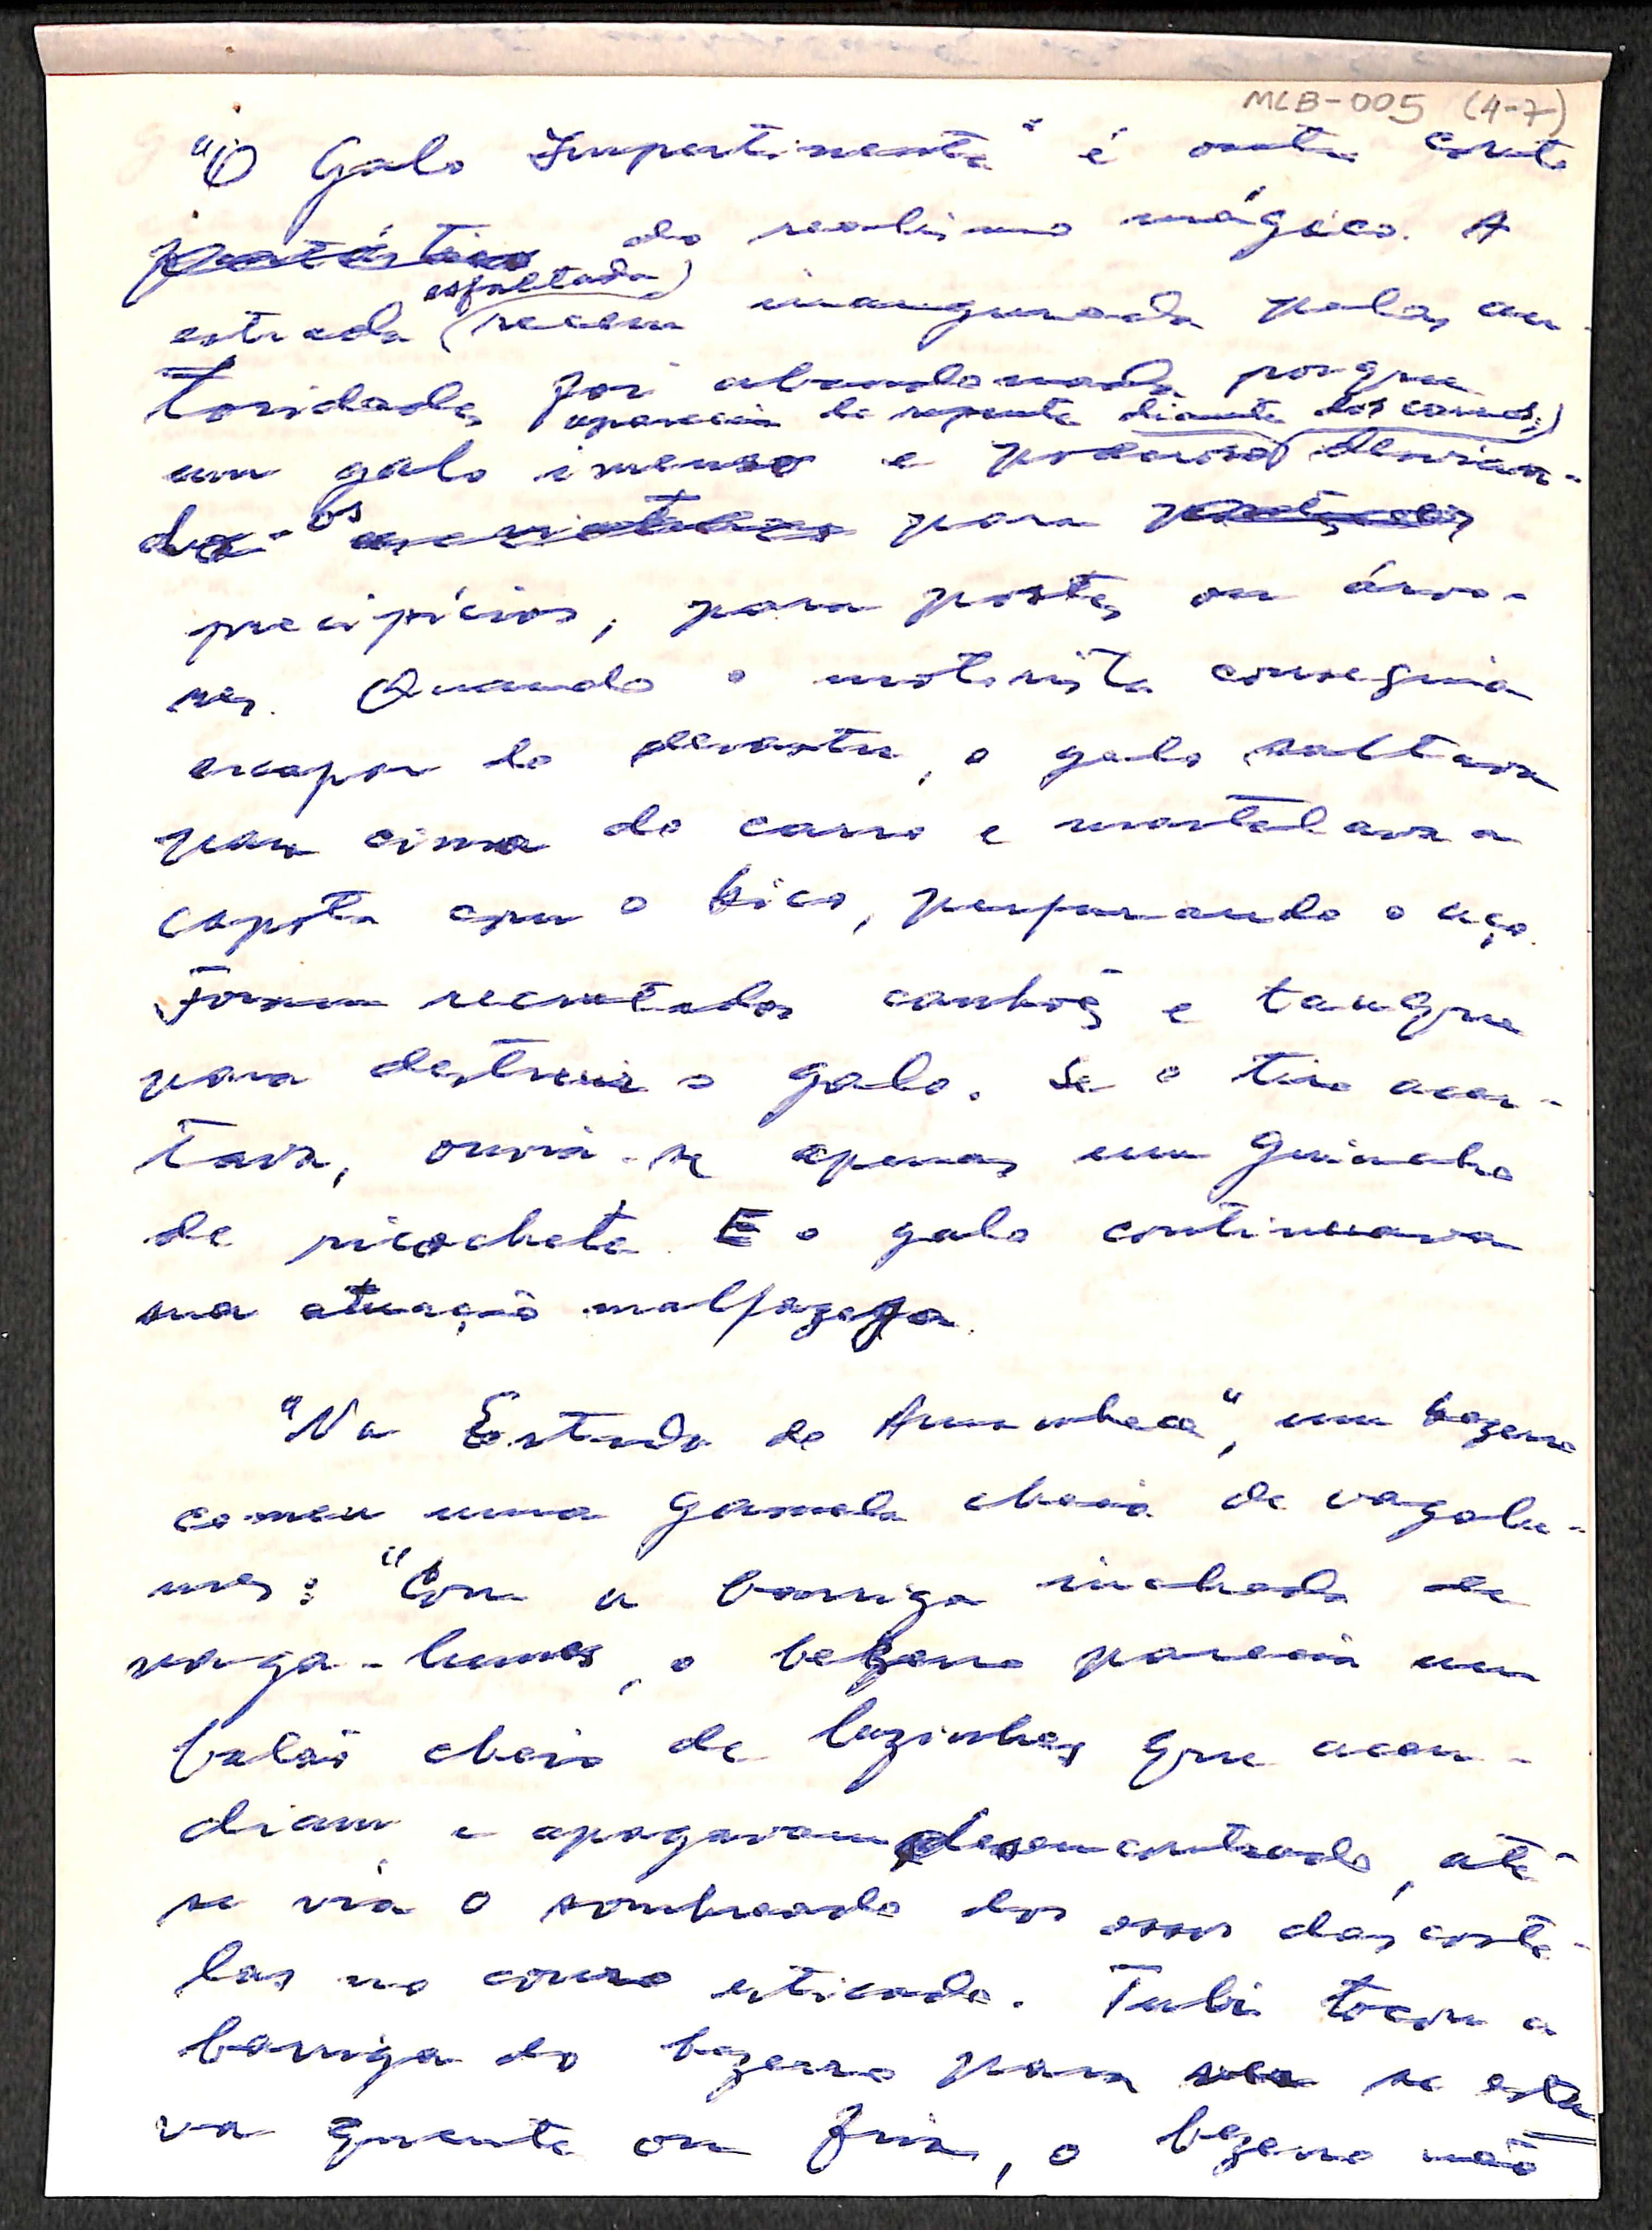 MLB-005 (4-7)
"O Galo Impertinente" é outro conto
fantástico do realismo mágico. A
asfaltada
estrada (recem inaugurada pelas au-
toridades foi abandonada porque
aparecia de repente diante dos carros,)
um galo imenso e poderoso desvian-
do-os para
precipícios, para postes ou árvo-
res. Quando o motorista conseguia
escapar do desastre, o galo saltava
para cima do carro e martelava a
capota com o bico, perfurando o aço.
Foram recrutados canhões e tanque
para destruir o galo. Se o tiro acer-
tava, ouvia-se apenas um guincho
de ricochete. E o galo continuava
sua atuação malfazeja.
"Na Estrada do Amanhece", um bezerro
comeu uma gamela cheia de vagalu-
mes: "Com a barriga inchada de
vaga-lumes, o bezerro parecia um
balão cheio de luzinhas que acen-
diam e apagavam desencontrado, até
se via o sombreado dos ossos das coste-
las no couro esticado. Tubi tocou a
barriga do bezerro para ver se esta
va quente ou fria, o bezerro não